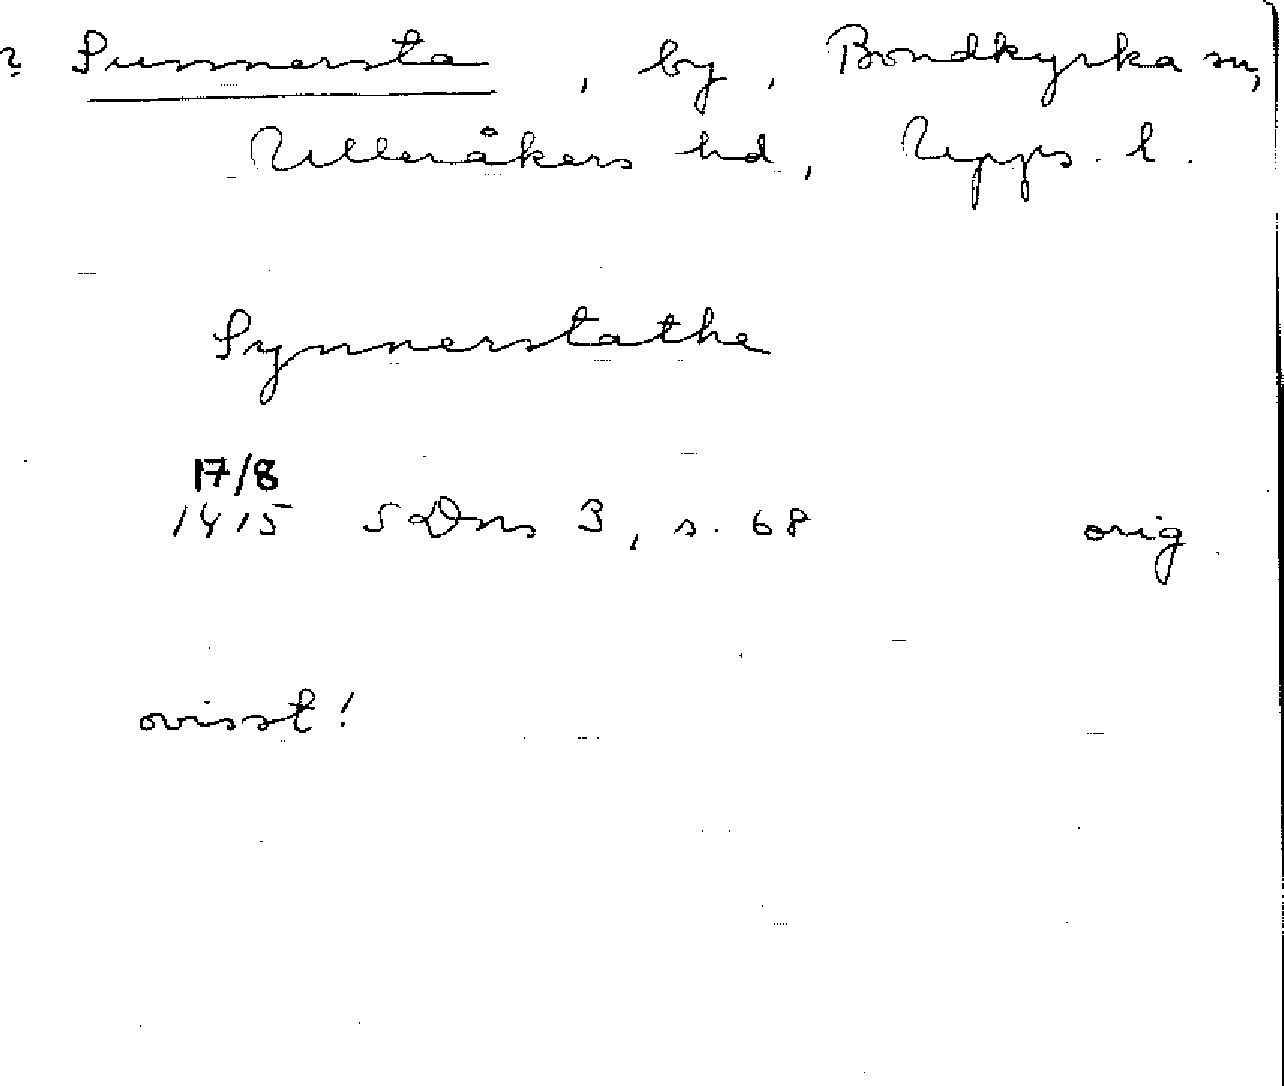 ? Sunnersta, by, Bondkyrka sn,
Ulleråkers hd, Upps. l.
Synnerstathe
17/8
1415 SDns 3, s. 68 orig.
ovisst!